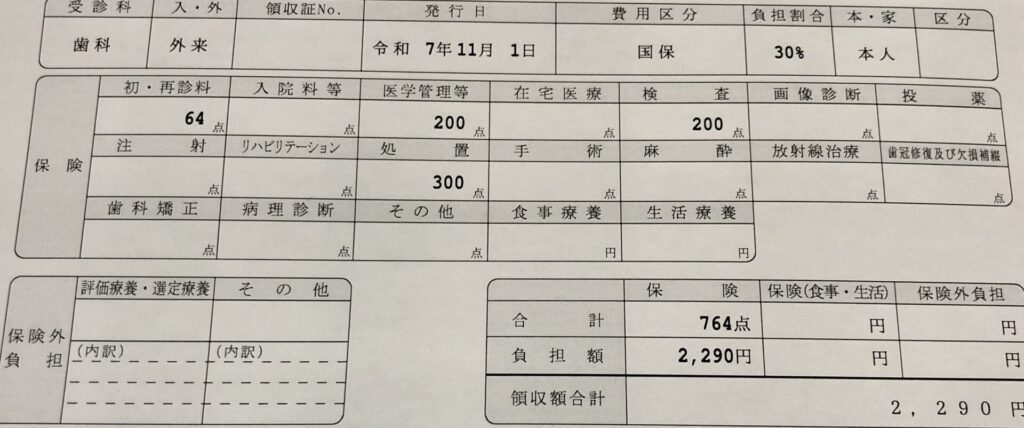 受診科 入・外 領収証No. 発行日 費用区分 負担割合 本・家 区分
歯科 外来 令和 7年11月 1日 国保 30% 本人
初・再診料 入院料等 医学管理等 在宅医療 検査 画像診断 投薬
64点 点 200点 点 200点 点 点
保険
注射 リハビリテーション 処置 手術 麻酔 放射線治療 歯冠修復及び欠損補綴
点 点 300点 点 点 点 点
歯科矯正 病理診断 その他 食事療養 生活療養
点 点 点 円 円
保険外負担
評価療養・選定療養 その他
(内訳) (内訳)
保険 保険(食事・生活) 保険外負担
合計 764点 円 円
負担額 2,290円 円 円
領収額合計 2,290円